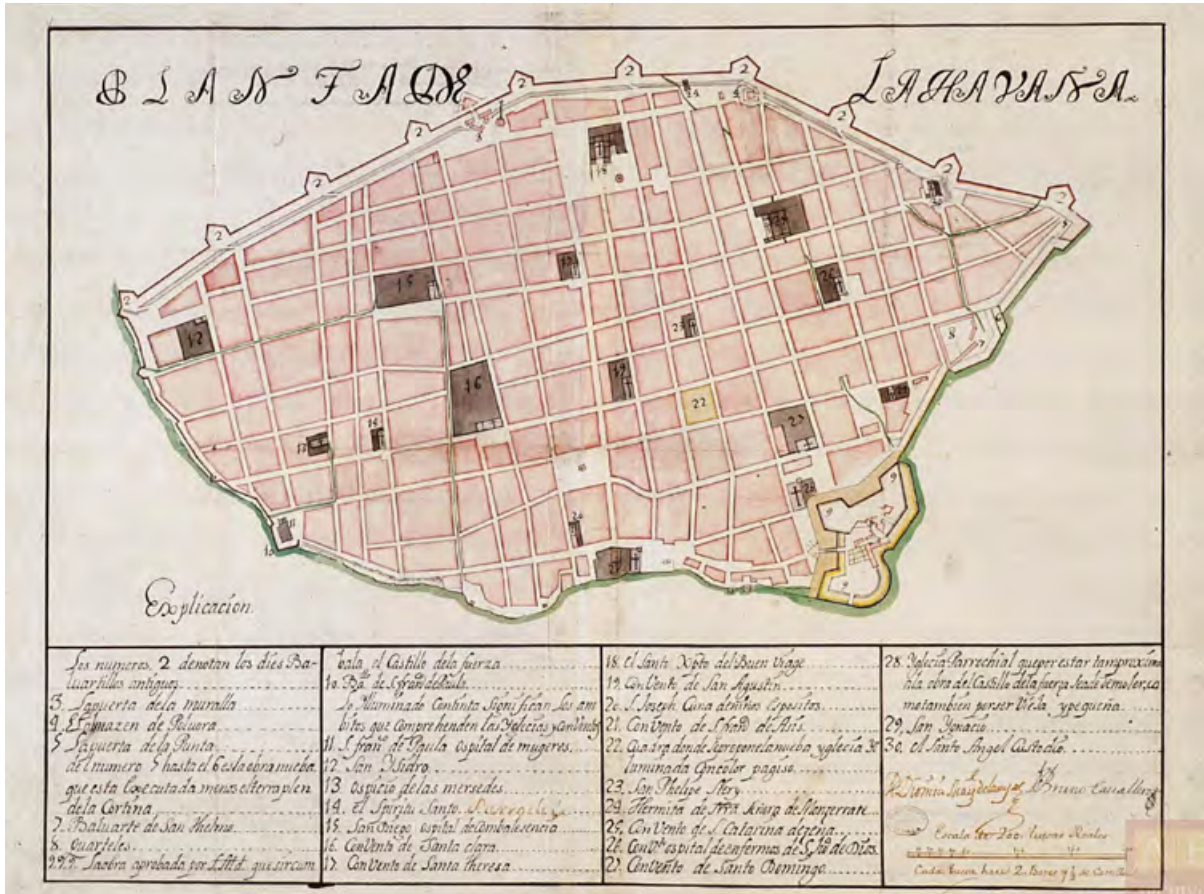 PLANTA DE LA HAVANA.
Explicacion.
Los numeros, 2 denotan los dies Ba-
luartillos antiguos
3. La puerta de la muralla
4. El almazen de Polvora
5. La puerta de la Punta
del numero 5 hasta el 6 es la obra nueba
que esta executada menos el terraplen
de la Cortina
7. Baluarte de San Thelmo
8. Quarteles
9.9.9. La obra aprobada por S.M. que sircum
bala, el Castillo dela fuerza
10. de S. fran de Paula
lo Illuminado Continta Signifícan los am
bitos que Comprehenden las Yglecias y Conventos
11. S. fran de Paula ospital de mugeres
12. San Ysidro
13. ospicio de las mersedes
14. el Spiritu Santo.
15. San Diego ospital de Combalesencia
16. Convento de Santa clara
17. Convento de Santa theresa
18. el Santo Xpto del Buen Viage
19. Convento de San Agustin
20. S. Joseph Cuna de niños Espositos
21. Convento de S. fran de Asis
22. donde se propone la nueba yglecia
luminada Con color pagiso
23. San Phelipe Nery
24. Hermita de Ntra de Monserrate
25. Convento de S. Catarina de cena
26. ospital de enfermos de S. Ju de Dios
27. Convento de Santo Domingo
28. Yglecia Parrochial que por estar tam proxima
ala obra del Castillo dela fuerza se ade demoler, co
mo tambien por ser Vieja y pequeña
29. San Ygnacio
30. el Santo Angel Custodio
Bruno Cavallero
Escala de 200 Varas Reales